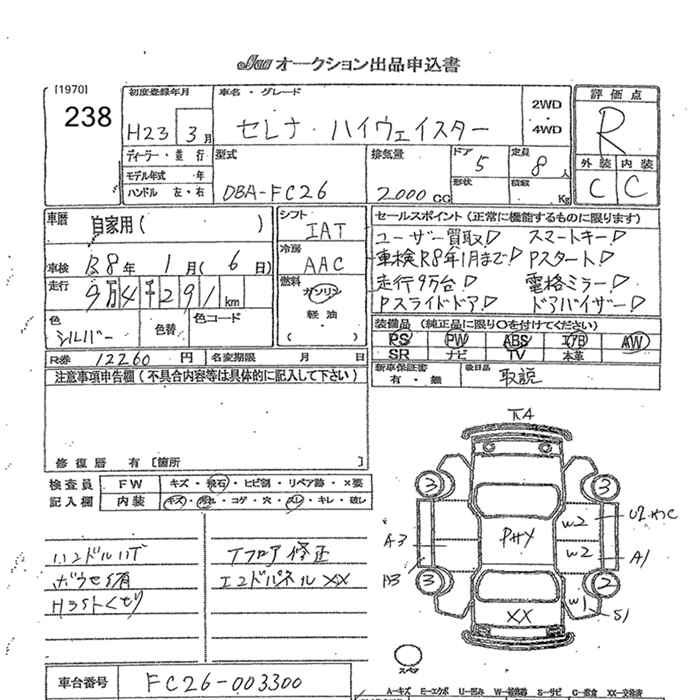 Jaa オークション出品申込書
[1970]
238
初度登録年月
H23 3月
車名・グレード
セレナ・ハイウェイスター
2WD
・
4WD
評価点
R
外装 内装
C C
ディーラー・並行
モデル年式 年
ハンドル 左・右
型式
DBA-FC26
排気量
2000 CC
ドア 5
形状
定員 8人
積載 Kg
車歴
自家用( )
車検 R8年 1月( 6日)
走行
9万4千291km
色
シルバー
色替
色コード
シフト
IAT
冷房
AAC
燃料
ガソリン
・
軽油
( )
セールスポイント(正常に機能するものに限ります)
ユーザー買取! スマートキー!
車検R8年1月まで! Pスタート!
走行9万台! 電格ミラー!
Pスライドドア! ドアバイザー!
装備品(純正品に限り〇を付けてください)
PS PW ABS エアB AW
SR ナビ TV 本革
R券 12260円 名変期限 月 日
新車保証書
有・無
後日品
取説
注意事項申告欄(不具合内容等は具体的に記入して下さい)
修復歴 有 [箇所
検査員
記入欄
FW キズ・飛石・ヒビ割・リペア跡・×要
内装 キズ・汚れ・コゲ・穴・スレ・キレ・破し
ハンドルハゲ
Tフロア修正
エンドパネルXX
車台番号
FC26-003300
3
3
3
2
A3
W2
W2
A1
PHY
W1
S1
XX
スペア
A-キズ E-エクボ U-凹み W-補修跡 S-サビ C-腐食 XX-交換済